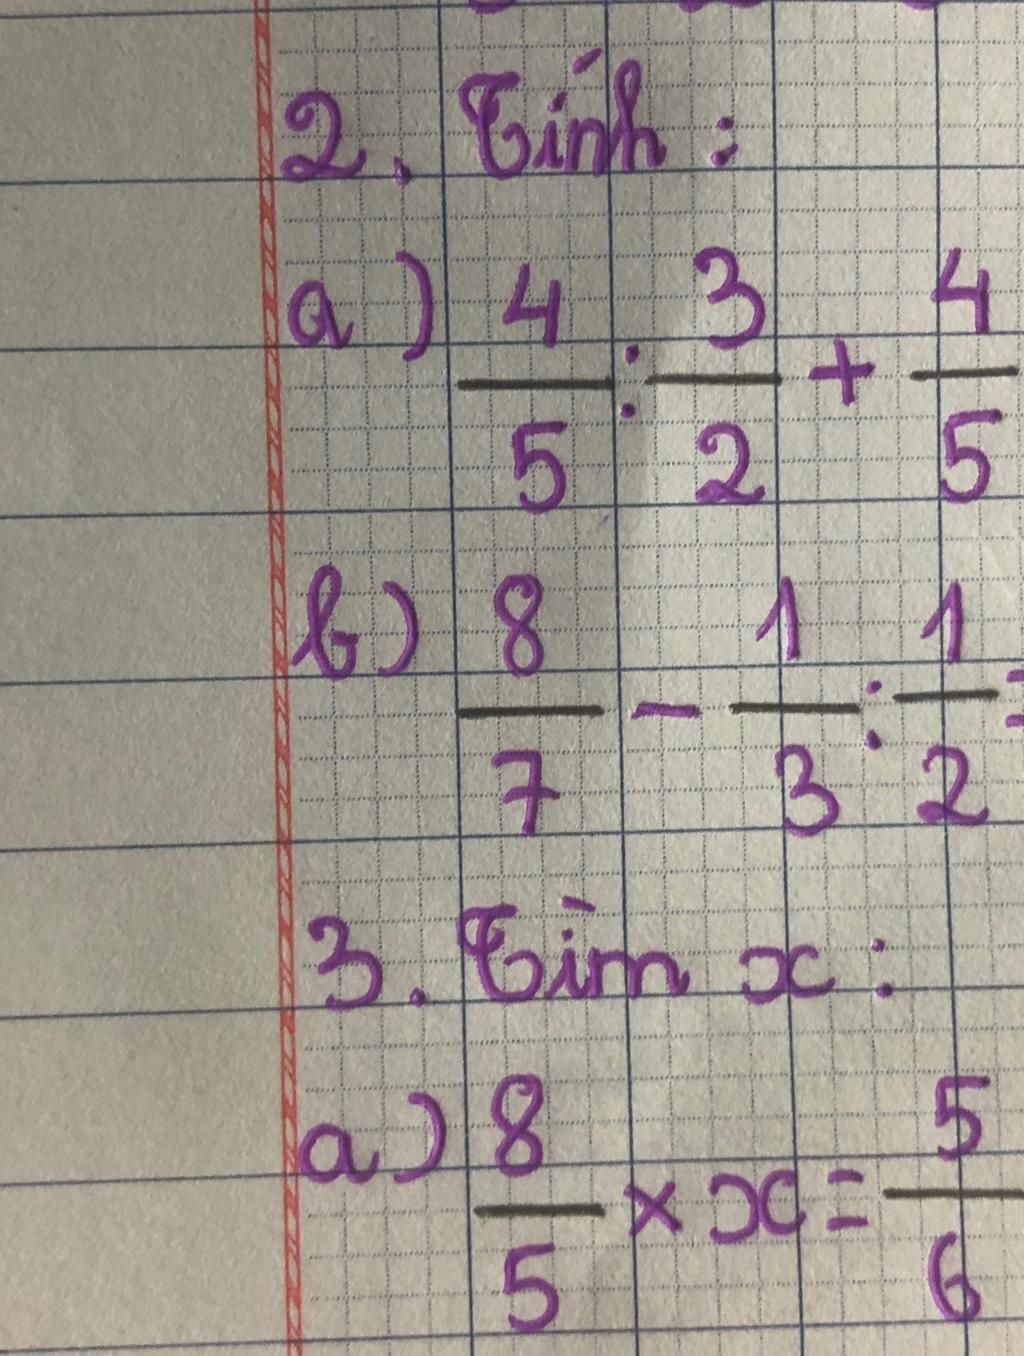 2. Tính :
a) 4/5 : 3/2 + 4/5
b) 8/7 - 1/3 : 1/2 =
3. Tìm x :
a) 8/5 × x = 5/6